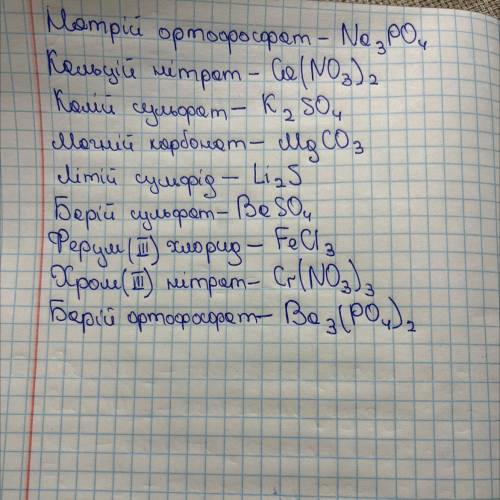 Натрій ортофосфат – Na₃PO₄
Кальцій нітрат – Ca(NO₃)₂
Калій сульфат – K₂SO₄
Магній карбонат – MgCO₃
Літій сульфід – Li₂S
Барій сульфат – BaSO₄
Ферум(III) хлорид – FeCl₃
Хром(III) нітрат – Cr(NO₃)₃
Барій ортофосфат – Ba₃(PO₄)₂